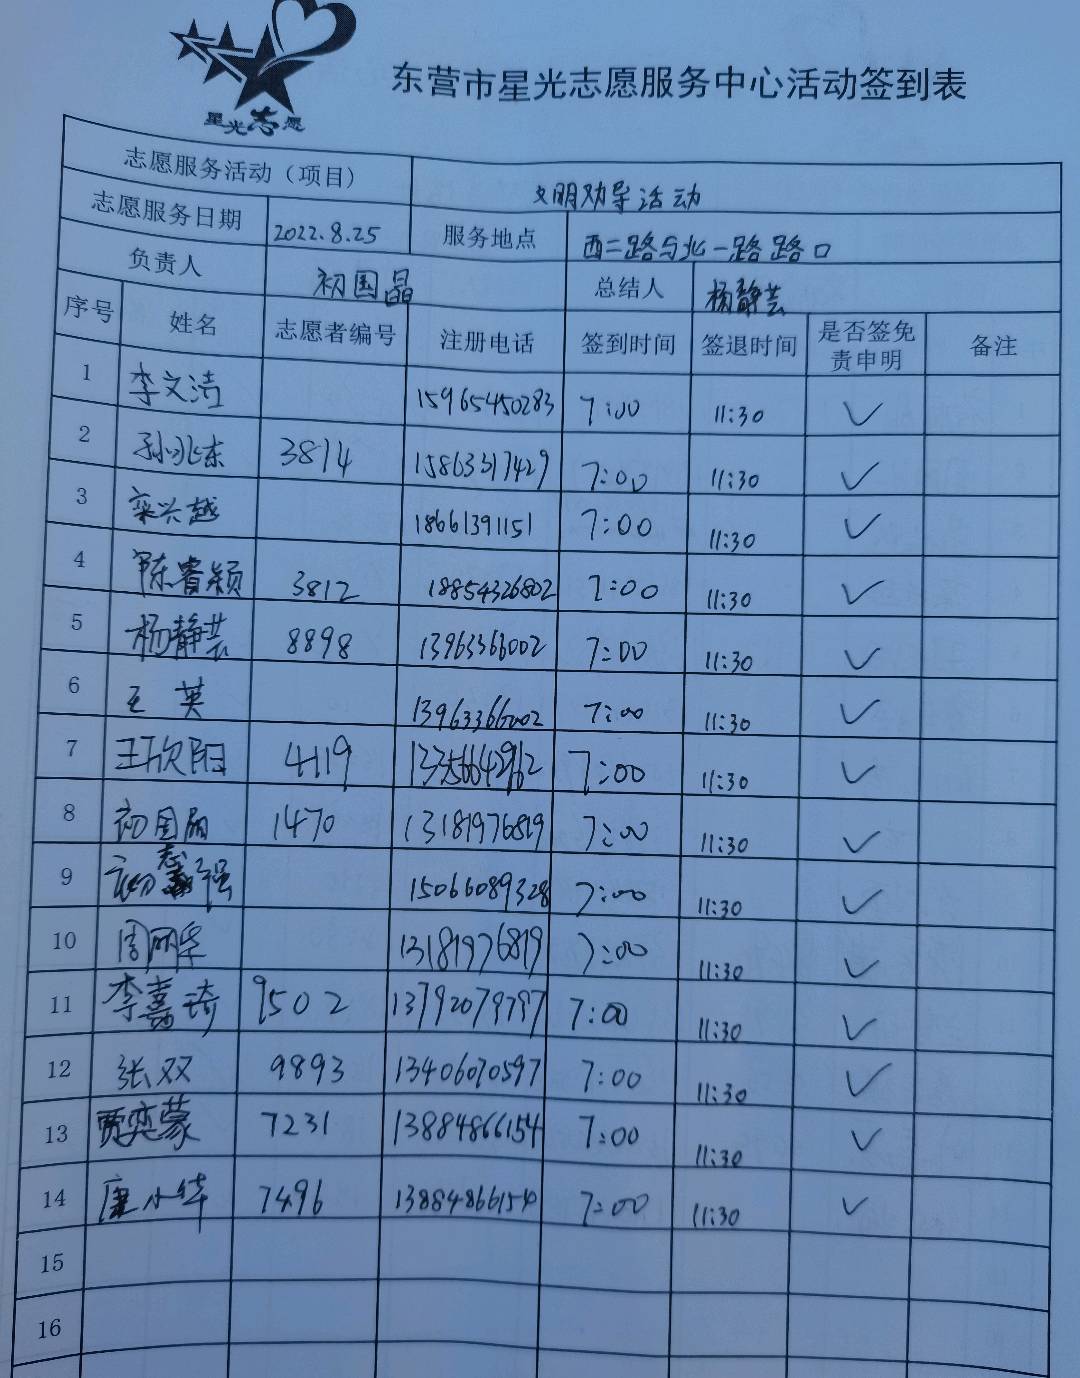 星光志愿
东营市星光志愿服务中心活动签到表
志愿服务活动（项目） 文明劝导活动
志愿服务日期 2022.8.25 服务地点 西二路与北一路路口
负责人 初国晶 总结人 杨静芸
序号 姓名 志愿者编号 注册电话 签到时间 签退时间 是否签免责申明 备注
1 李文洁 15965450283 7:00 11:30 ✓
2 孙兆东 3814 15863317429 7:00 11:30 ✓
3 栾兴越 18661391151 7:00 11:30 ✓
4 陈睿颖 3812 18854326802 7:00 11:30 ✓
5 杨静芸 8898 13963366002 7:00 11:30 ✓
6 王英 13963366002 7:00 11:30 ✓
7 王欣阳 4119 13356642962 7:00 11:30 ✓
8 初国晶 1470 13181976819 7:00 11:30 ✓
9 初志强 15066089328 7:00 11:30 ✓
10 周丽华 13181976819 7:00 11:30 ✓
11 李嘉琦 9502 13792079797 7:00 11:30 ✓
12 张双 9893 13406070597 7:00 11:30 ✓
13 贾奕蒙 7231 13884866154 7:00 11:30 ✓
14 唐小华 7496 13884866154 7:00 11:30 ✓
15
16